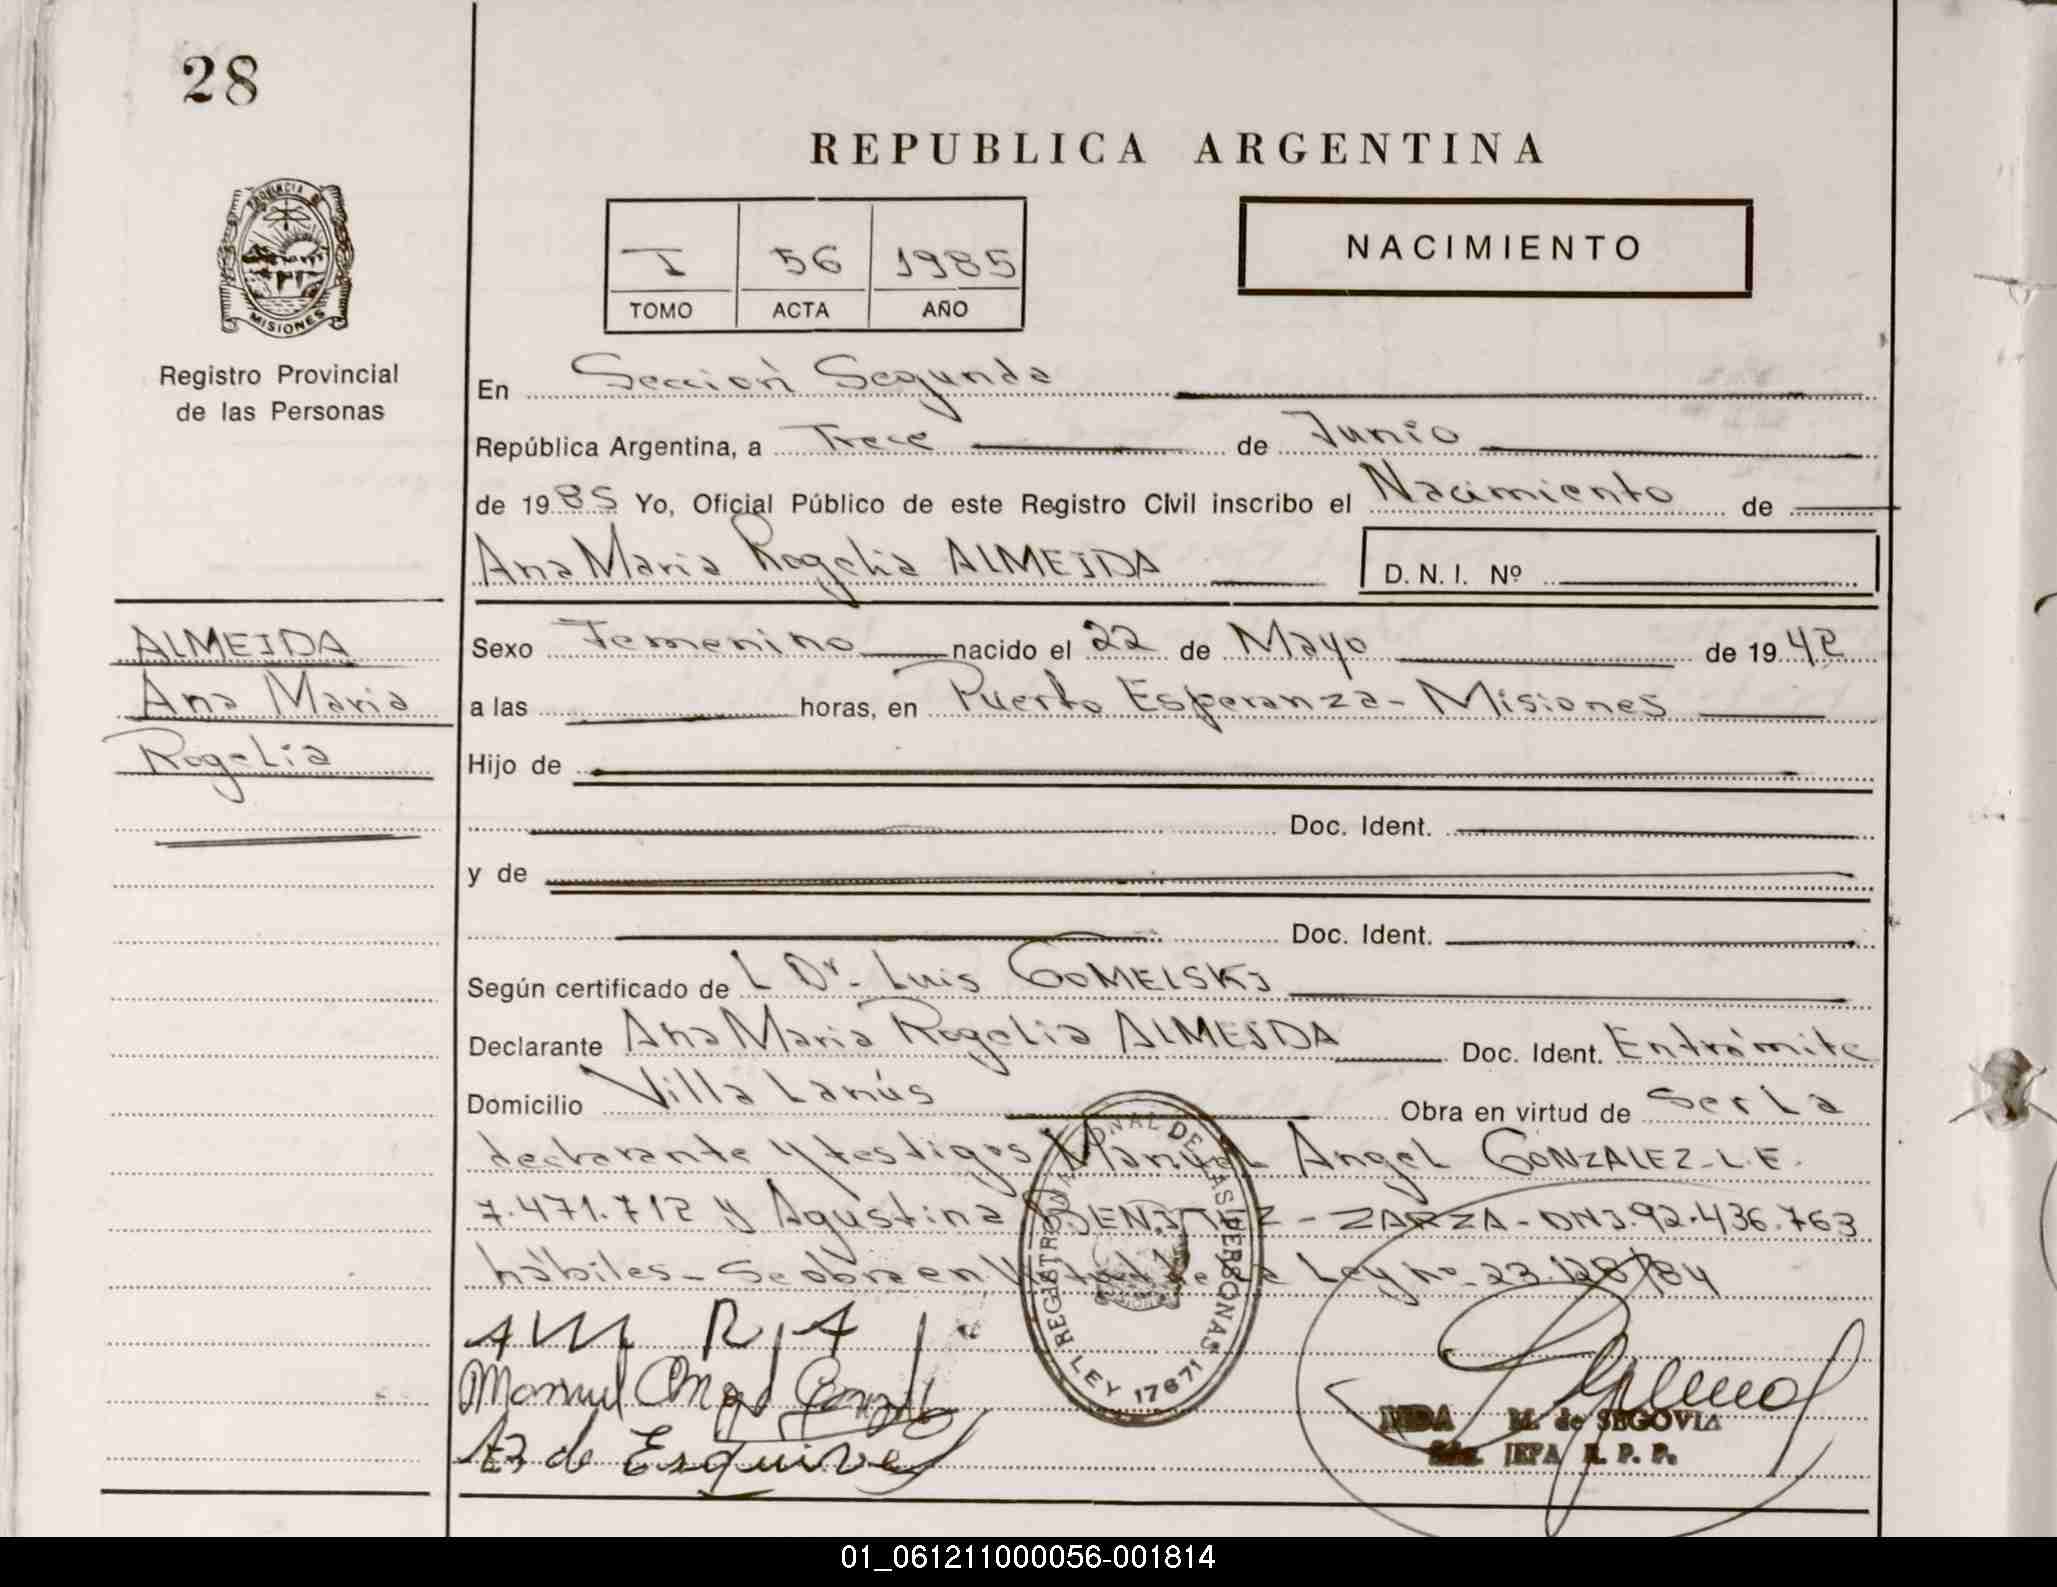 28
REPUBLICA ARGENTINA
PROVINCIA DE
MISIONES
Registro Provincial
de las Personas
I 56 1985
TOMO ACTA AÑO
NACIMIENTO
En Sección Segunda
República Argentina, a Trece de Junio
de 1985 Yo, Oficial Público de este Registro Civil inscribo el Nacimiento de
Ana Maria Rogelia ALMEIDA D. N. I. Nº
ALMEIDA
Ana Maria
Rogelia
Sexo Femenino nacido el 22 de Mayo de 1942
a las horas, en Puerto Esperanza - Misiones
Hijo de
Doc. Ident.
y de
Doc. Ident.
Según certificado de L Dr. Luis GOMELSKI
Declarante Ana Maria Rogelia ALMEIDA Doc. Ident. Entrámite
Domicilio Villa Lanús Obra en virtud de Ser La
declarante y testigos Manuel Angel GONZALEZ - L.E.
7.471.712 y Agustina BENITEZ - ZARZA - DNI. 92.436.763
hábiles - Se obra en Virtud de la Ley nº 23.128/84
REGISTRO NACIONAL DE LAS PERSONAS
LEY 17671
A M R A
Manuel Angel Gonzalez
AB de Esquivel
M. de SEGOVIA
JEFA R. P. P.
01_061211000056-001814